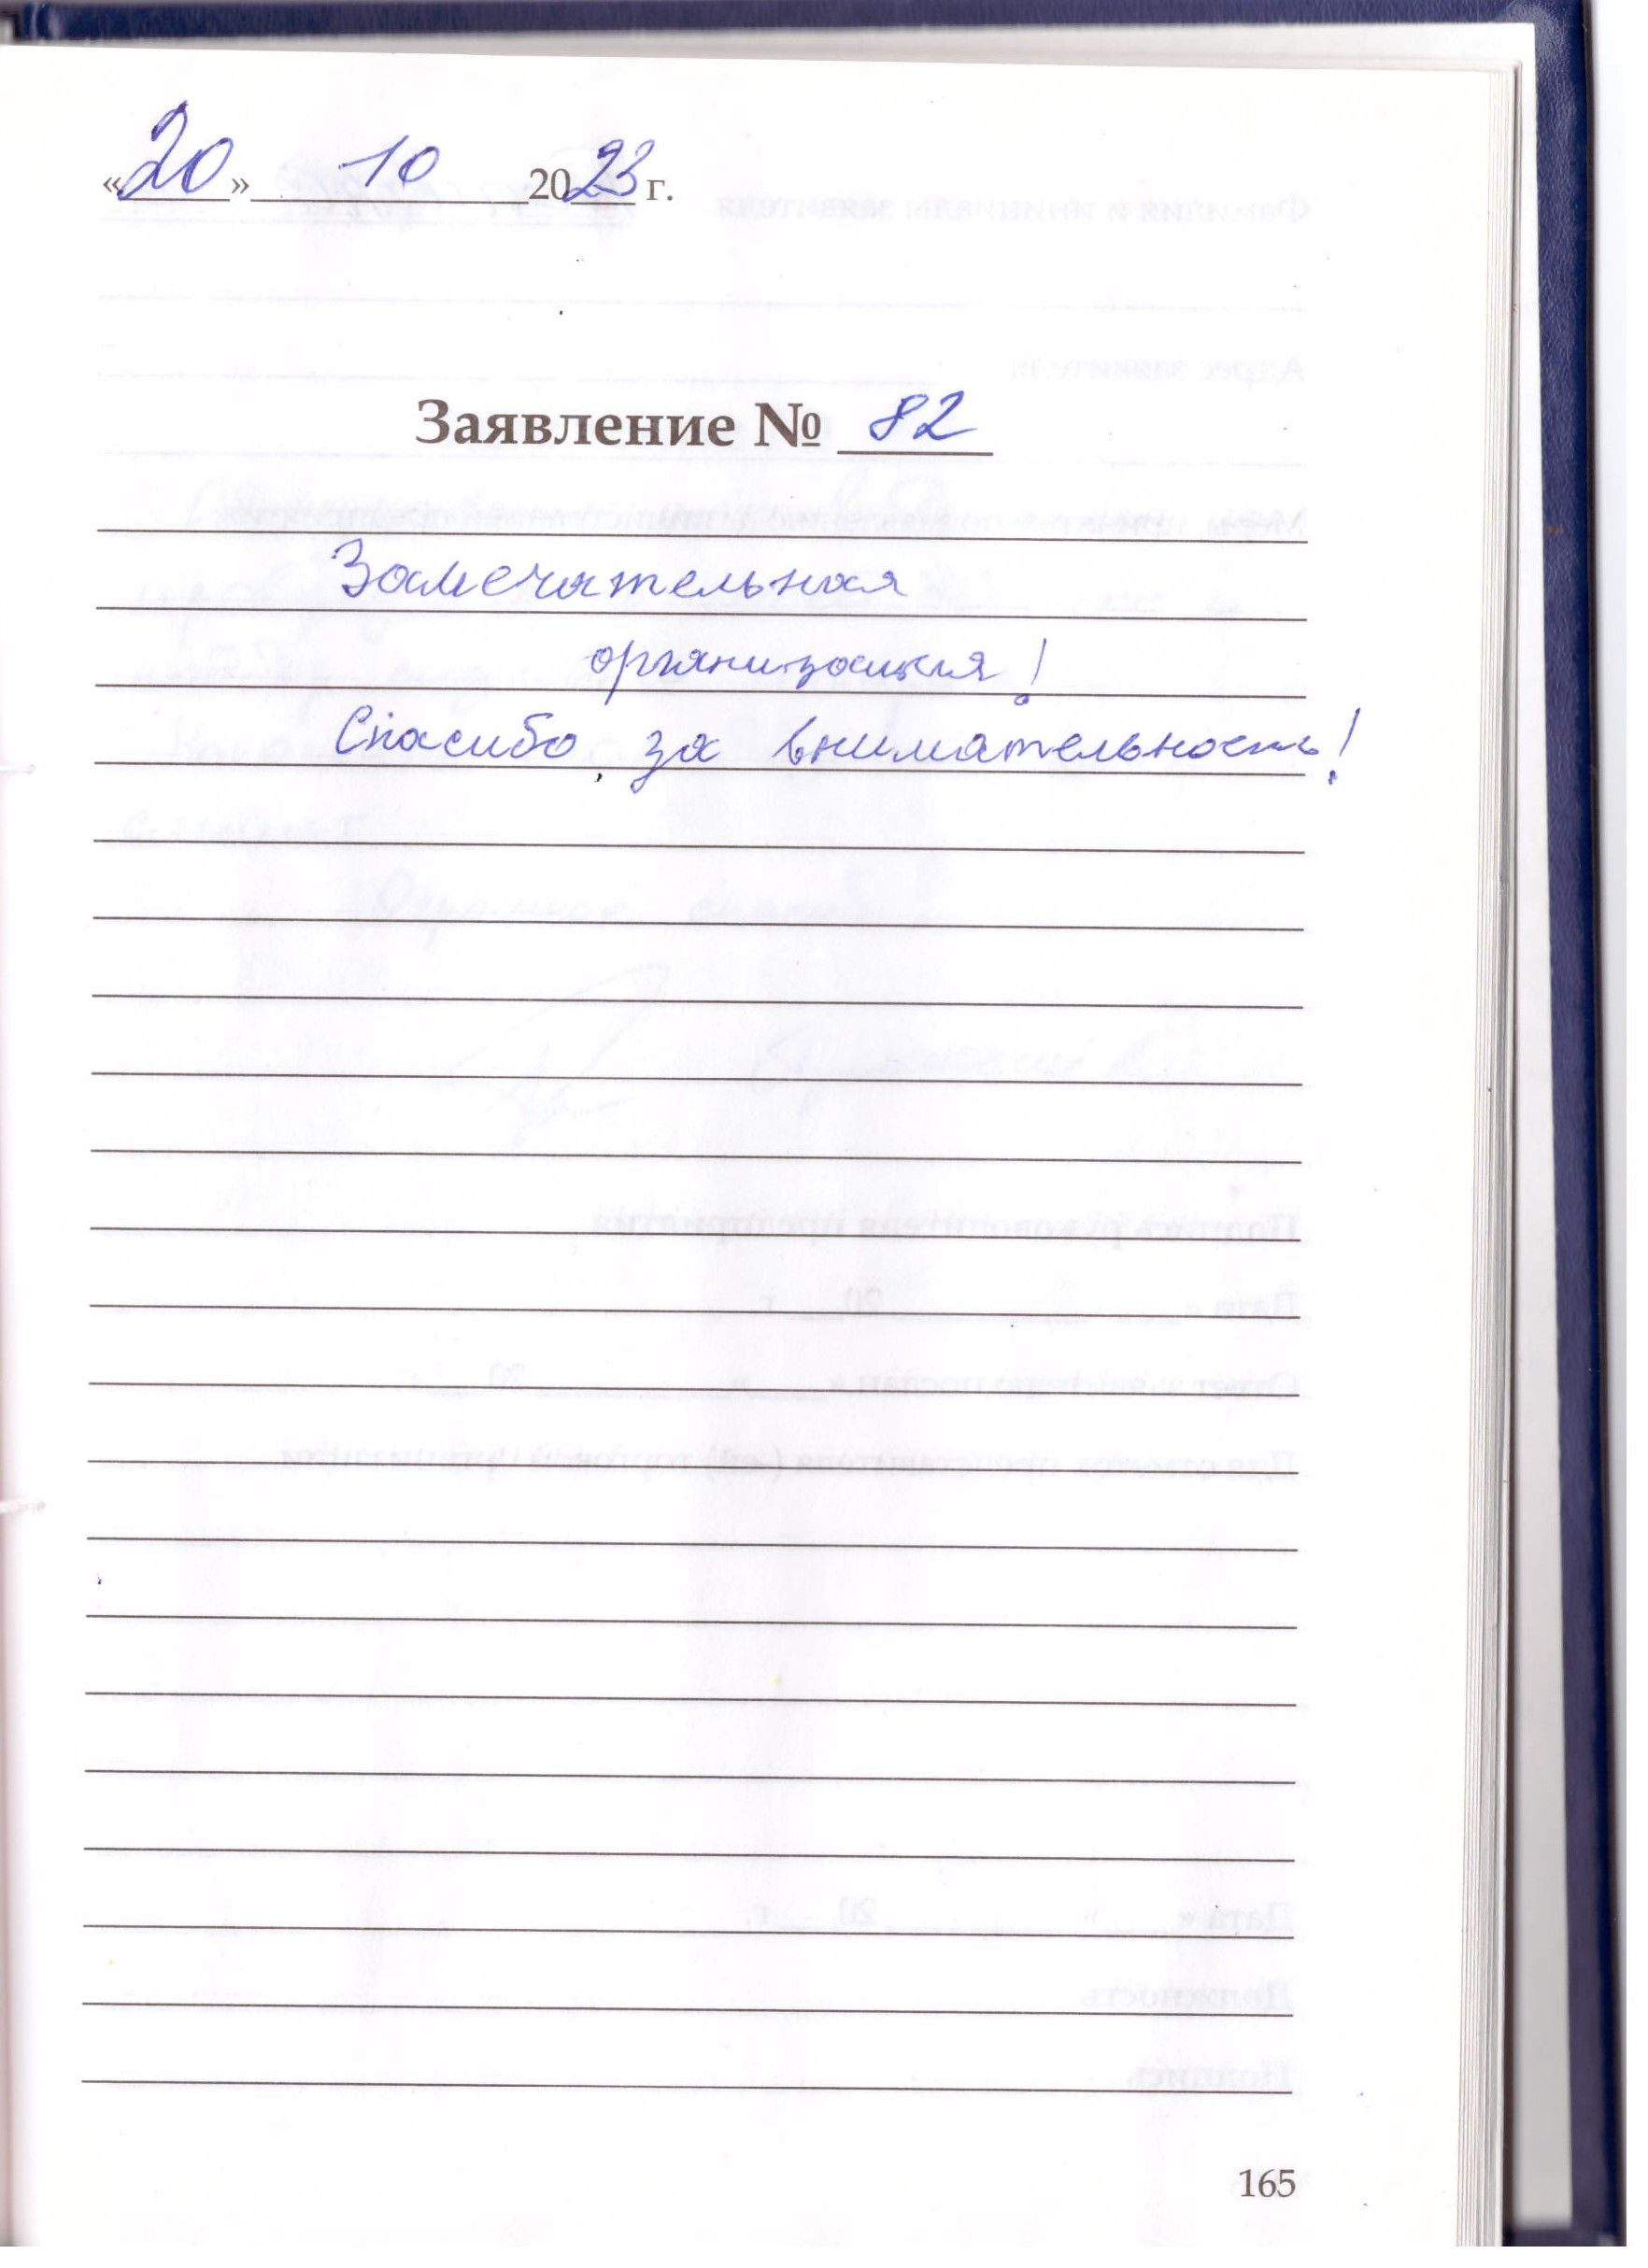 «20» 10 2023 г.
Заявление № 82
Замечательная
организация!
Спасибо за внимательность!
165